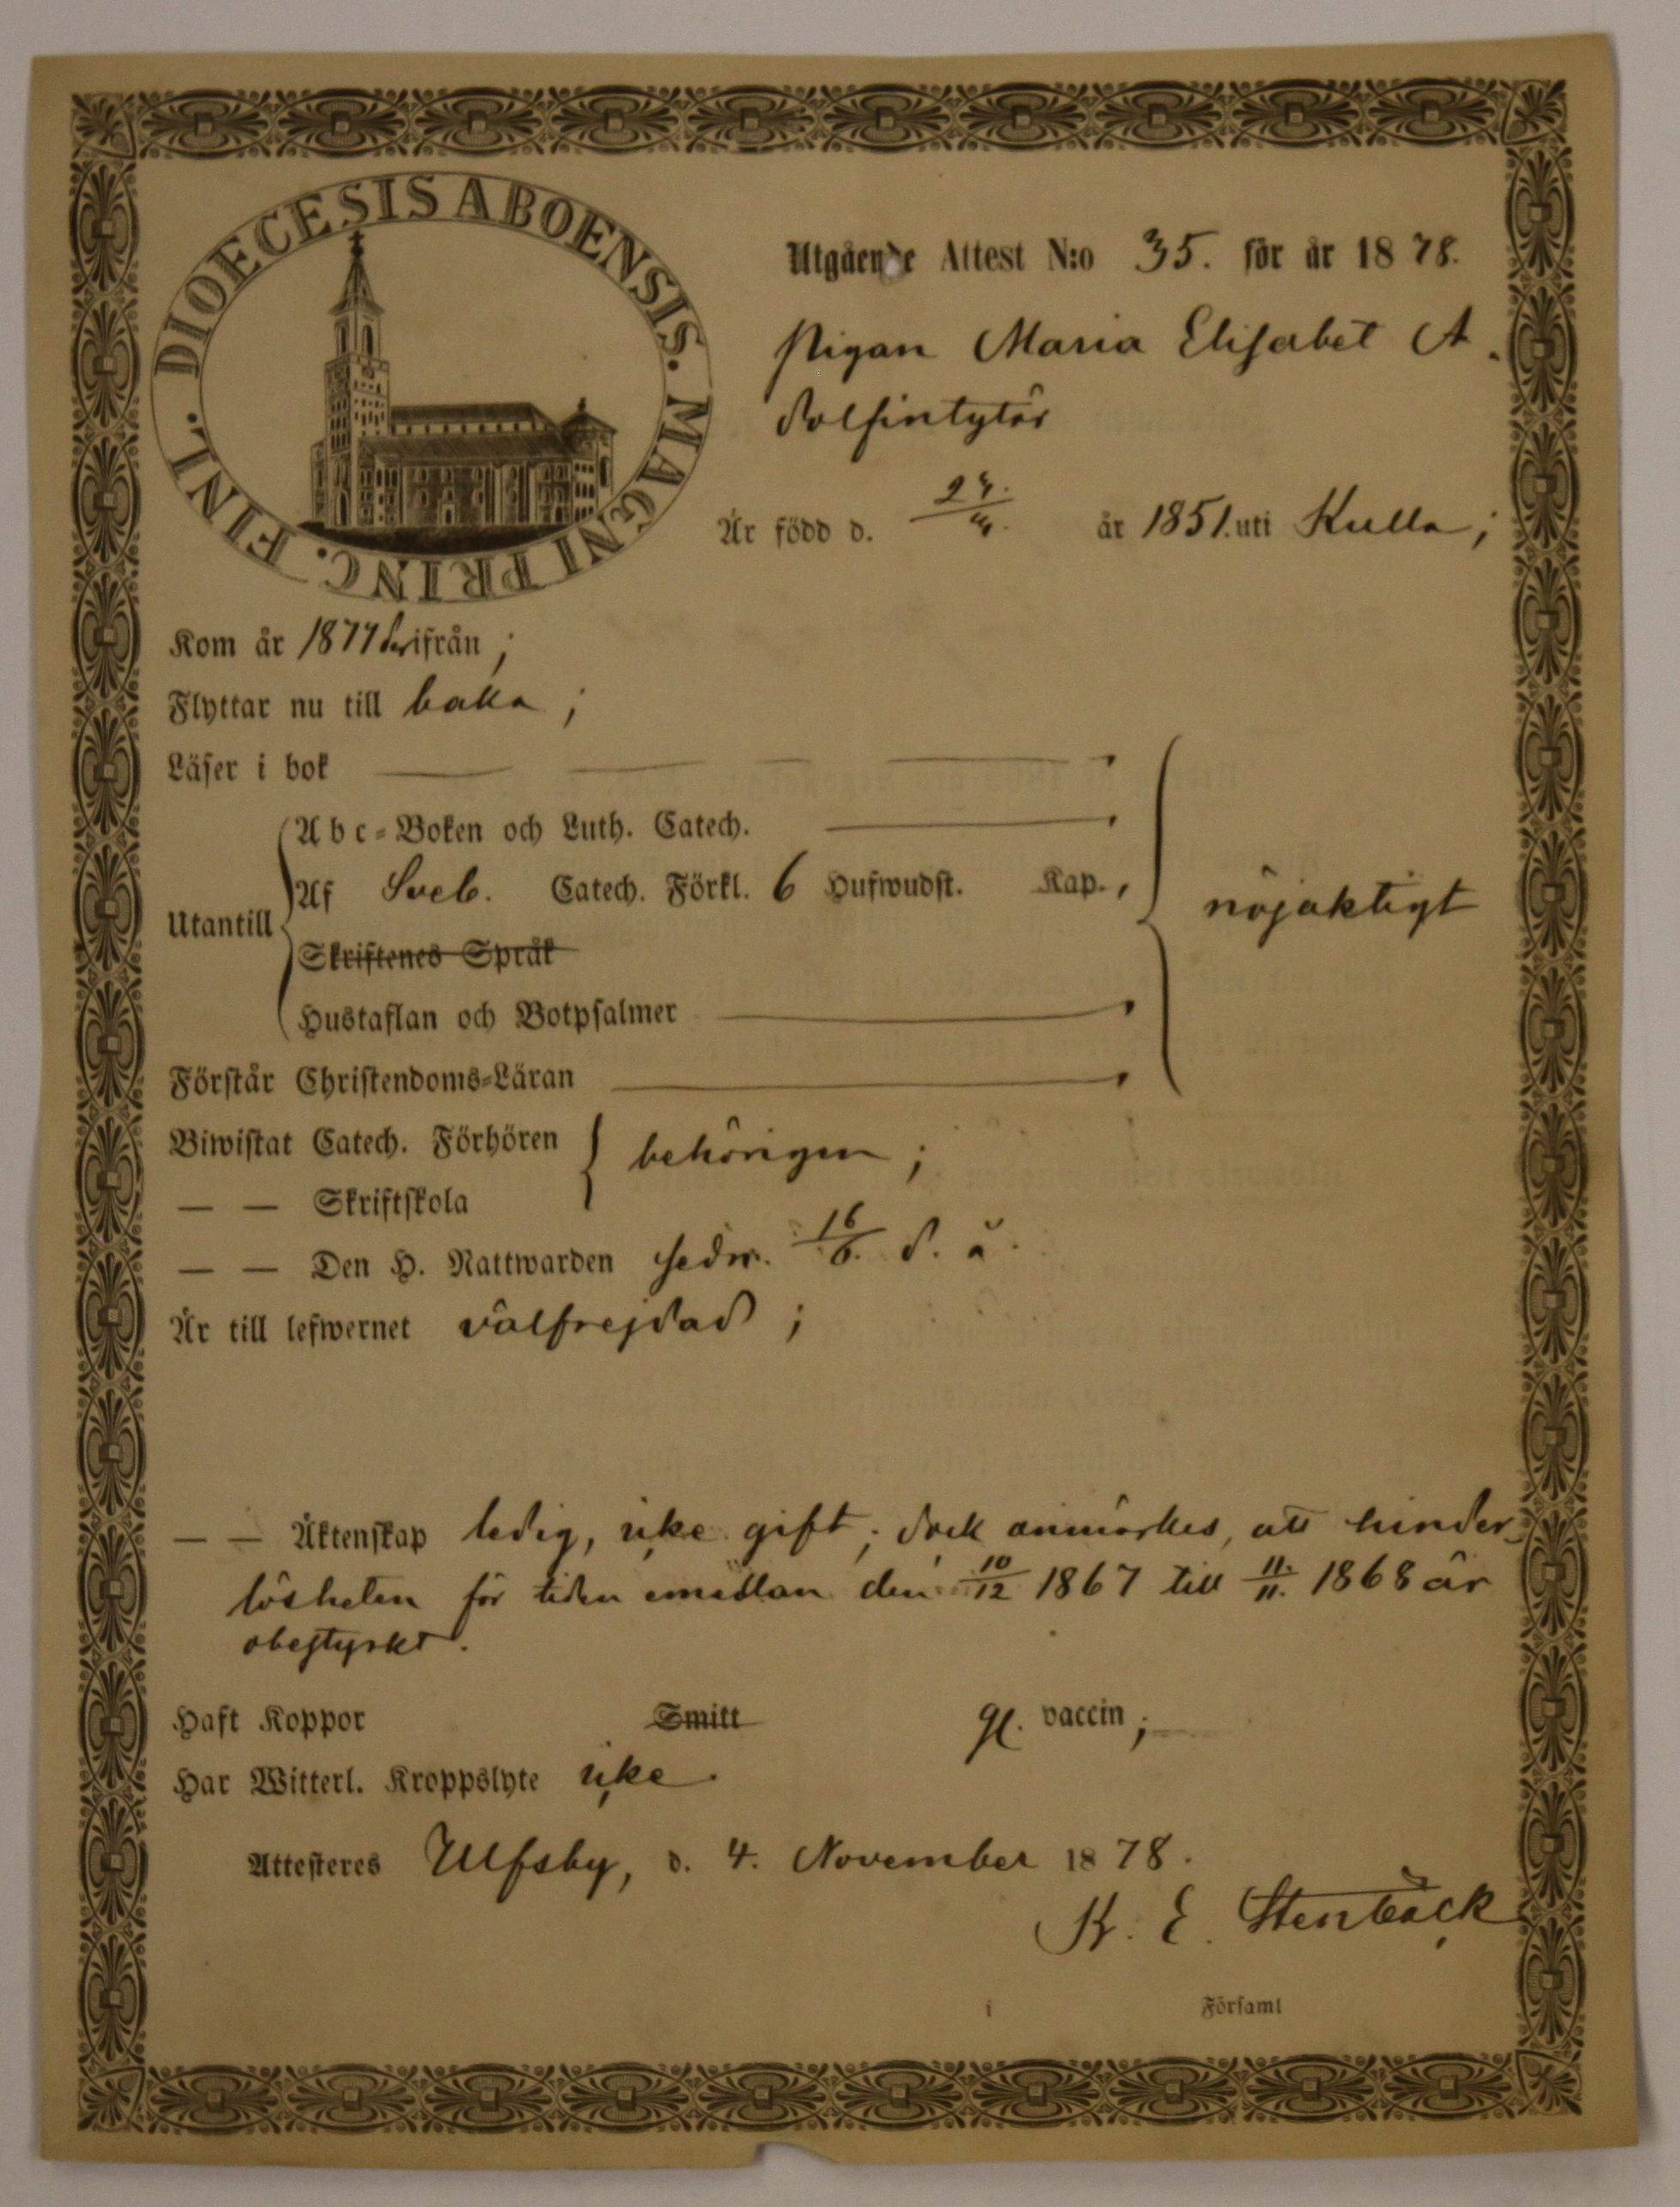 DIOECESIS ABOENSIS. MAGNI PRINC. FINL.
Utgående Attest N:o 35. för år 1878.
Pigan Maria Elisabet A.
dolfintytär
Är född d. år 1851. uti Kulla;
Kom år 1877 derifrån;
Flyttar nu till baka;
Läser i bok
Utantill
Abc-Boken och Luth. Catech.
Af Sveb. Catech. Förkl. 6 Hufwudst. Kap.,
nöjaktigt
Skriftenes Språk
Hustaflan och Botpsalmer
Förstår Christendoms-Läran
Biwistat Catech. Förhören behörigen;
— — Skriftskola
— — Den H. Nattwarden sedn. 16/6. d. å.
Är till lefwernet välfrejdad;
— — Äktenskap ledig, icke gift; dock anmärkes, att hinder-
lösheten för tiden emellan den 10/12 1867 till 11./11. 1868 är
obestyrkt.
Haft Koppor Smitt vaccin;
Har Witterl. Kroppslyte icke.
Attesteres Ulfsby, d. 4. November 1878.
K. E. Stenbäck
i Församl